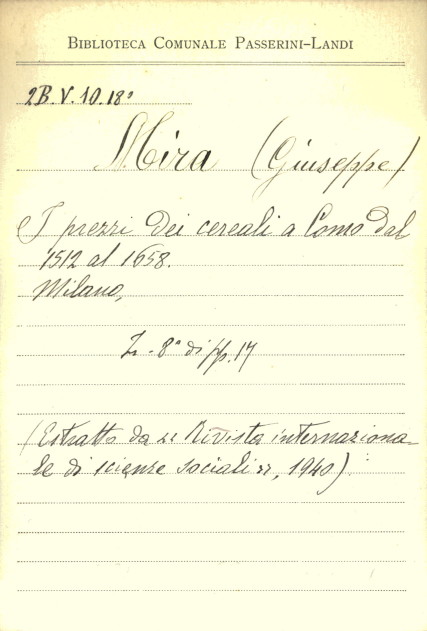 BIBLIOTECA COMUNALE PASSERINI-LANDI
2B.V.10.18º
Mira (Giuseppe)
I prezzi dei cereali a Como dal
1512 al 1658.
Milano,
In-8º di pp. 17
(Estratto da "Rivista internaziona-
le di scienze sociali", 1940)